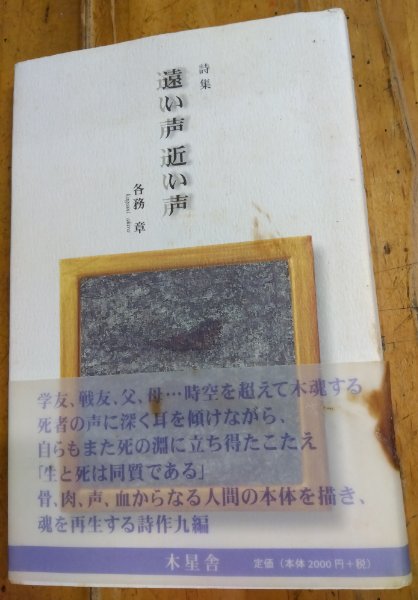 詩集
遠い声 近い声
各務 章
kagami akira
学友、戦友、父、母…時空を超えて木魂する
死者の声に深く耳を傾けながら、
自らもまた死の淵に立ち得たこたえ
「生と死は同質である」
骨、肉、声、血からなる人間の本体を描き、
魂を再生する詩作九編
木星舎
定価（本体2000円＋税）